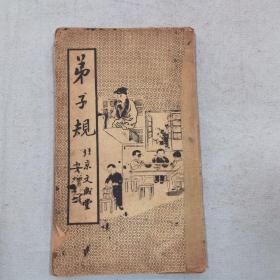 弟子規
北京文成堂